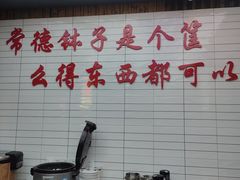 常德钵子是个筐
么得东西都可以